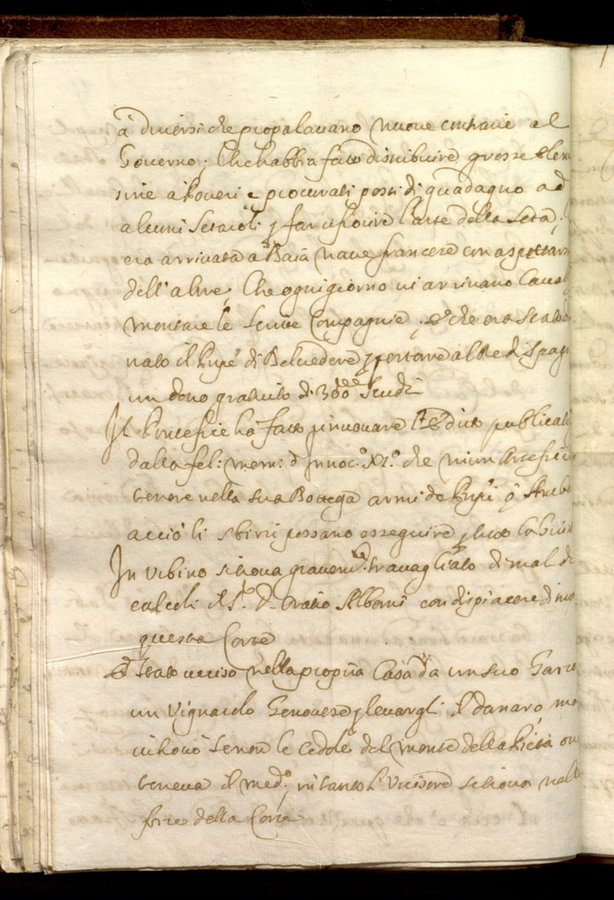 à diversi che propalavano nuove contrarie al
Governo. Che habbia fatto distribuire grosse elem
sine a Poveri e procurati posti di guadagno ad
alcuni Setaioli p far rifiorire l'arte della Seta,
era arrivata a Baia nave francese con aspettarne
dell'altre, Che ogni giorno vi arrivano Caval
montare le Compagnie, che era
nato il Prñpe di Belvedere p portare al Re di Spag
un dono gratuito di 300 Scudi
Il Pontefice ha fatto rinnovare l'Editto publicato
dalla fel: mem: d'Innoc.º XIº. che niun Artefice
tenere nella sua Bottega armi de Prñpi ò
acciò li sbirri possano esseguire p tutto
In Urbino si trova gravem.te travagliato di mal di
calcoli il S.r D. Oratio Albani con dispiacere di
questa Corte
È stato ucciso nella propria Casa da un suo Garzo
un Vignarolo Genovese p levargli il danaro, ma
trovò se non le cedole del monte della Pietà
teneva il med.º, intanto l'Uccisore si trova nelle
forze della Corte.